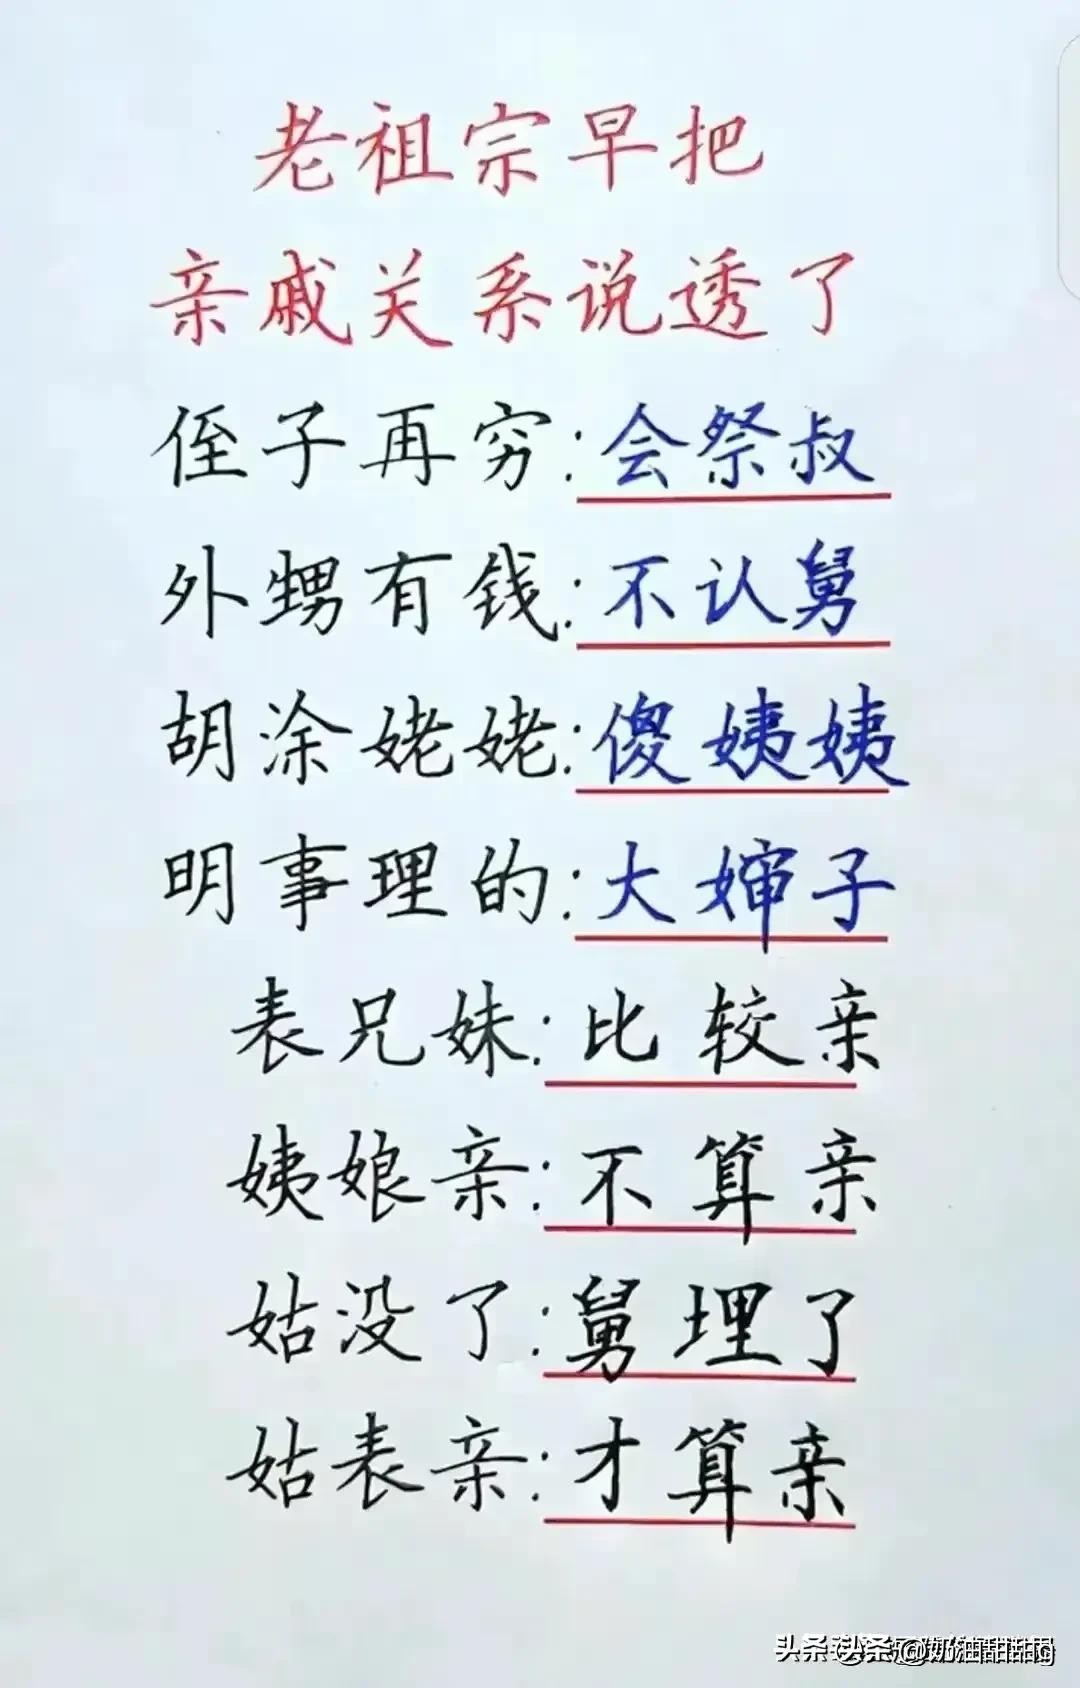 老祖宗早把
亲戚关系说透了
侄子再穷:会祭叔
外甥有钱:不认舅
胡涂姥姥:傻姨姨
明事理的:大婶子
表兄妹:比较亲
姨娘亲:不算亲
姑没了:舅埋了
姑表亲:才算亲
头条 @奶油甜甜